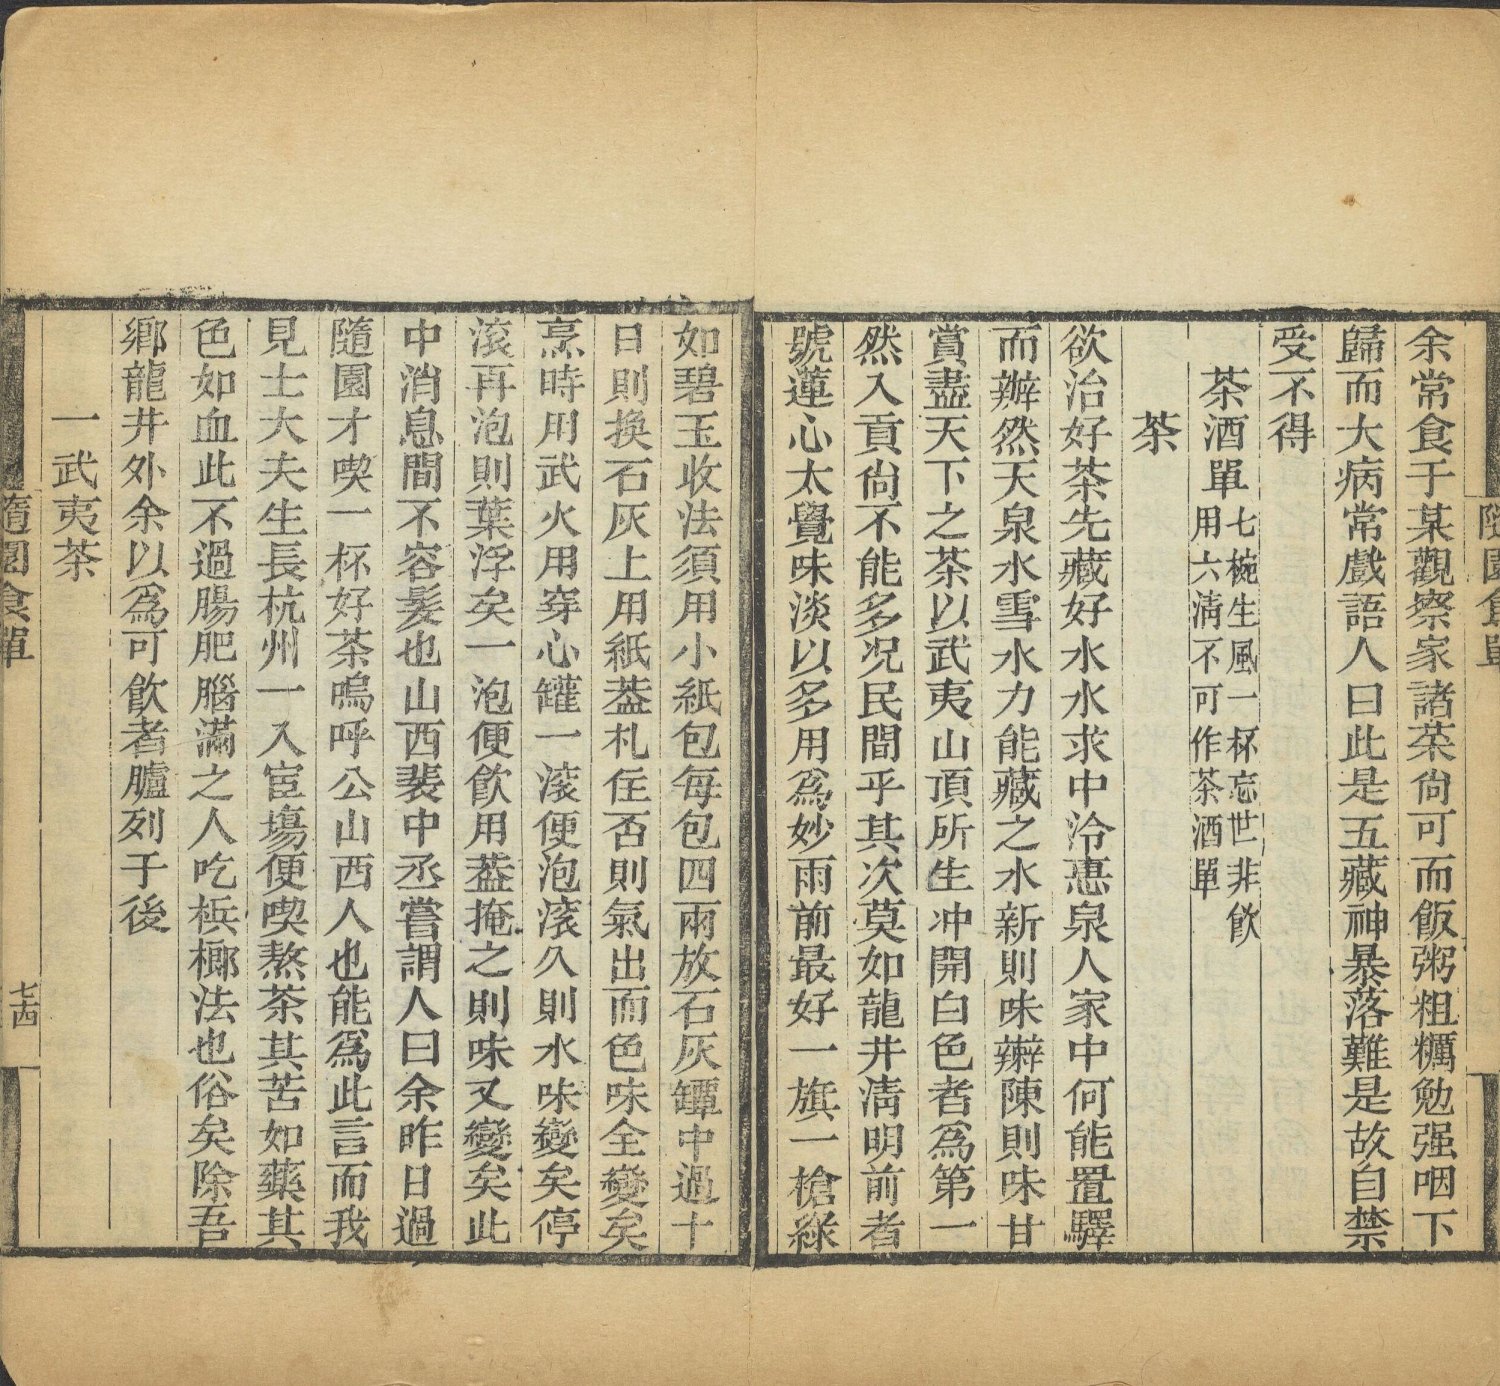 余常食于某觀察家諸菜尚可而飯粥粗糲勉强咽下
歸而大病常戲語人曰此是五藏神暴落難是故自禁
受不得
茶酒單七椀生風一杯忘世非飲
用六清不可作茶酒單
茶
欲治好茶先藏好水水求中泠惠泉人家中何能置驛
而辦然天泉水雪水力能藏之水新則味辣陳則味甘
嘗盡天下之茶以武夷山頂所生冲開白色者爲第一
然入貢尚不能多况民間乎其次莫如龍井清明前者
號蓮心太覺味淡以多用爲妙雨前最好一旗一槍綠
如碧玉收法須用小紙包每包四兩放石灰罈中過十
日則換石灰上用紙葢札住否則氣出而色味全變矣
烹時用武火用穿心罐一滚便泡滚久則水味變矣停
滚再泡則葉浮矣一泡便飲用葢掩之則味又變矣此
中消息間不容髮也山西裴中丞嘗謂人曰余昨日過
隨園才喫一杯好茶嗚呼公山西人也能爲此言而我
見士大夫生長杭州一入宦塲便喫熬茶其苦如藥其
色如血此不過腸肥腦滿之人吃梹榔法也俗矣除吾
鄉龍井外余以爲可飲者臚列于後
一武夷茶
隨園食單
七四
隨園食單